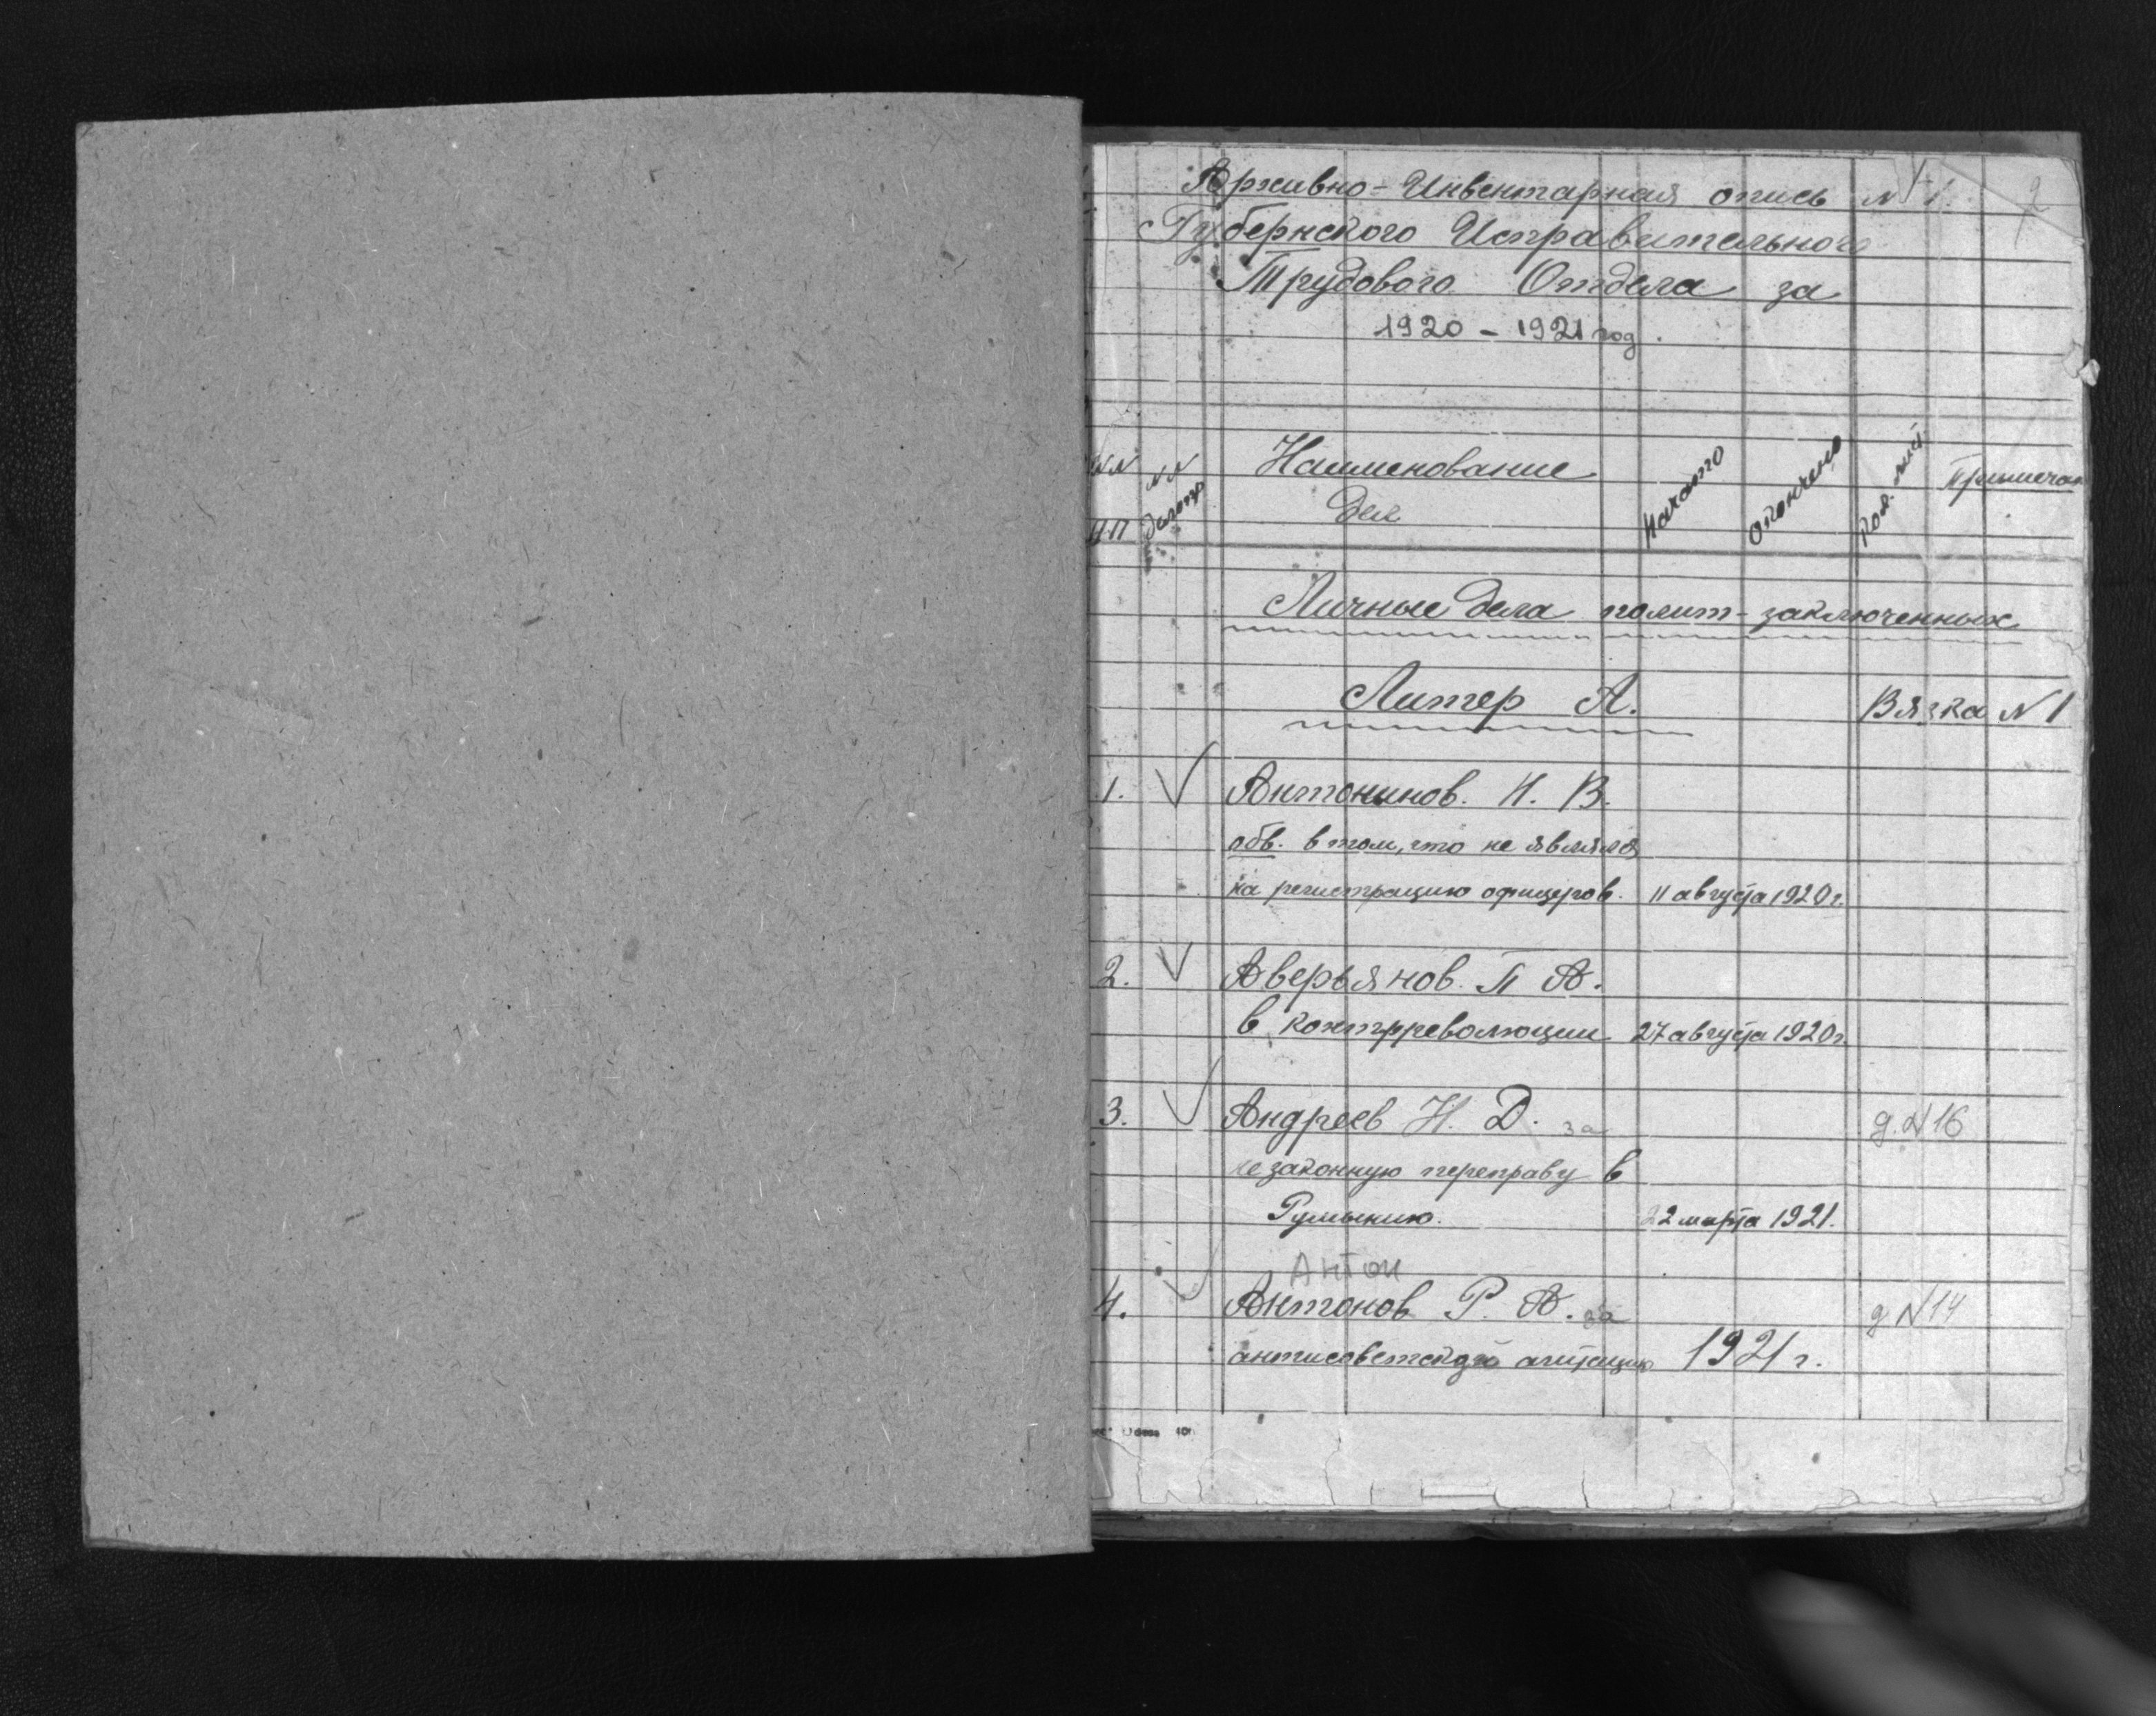 2
Архивно-Инвентарная опись N 1.
Губернского Исправительного
Трудового Отдела за
1920 - 1921 год.
NN п.п
NN
Наименование дел
Начато
Окончено
Кол. лист
Примечан
Личные дела полит-заключенных
Литер А.
Вязка N 1
1. Антонинов. И. В.
обв. в том, что не явился
на регистрацию офицеров. 11 августа 1920 г.
2. Аверьянов. П А.
в контрреволюции 27 августа 1920 г.
3. Андреев Н. Д. за д. N 16
незаконную переправу в
Румынию. 22 марта 1921.
Антон
4. Антонов Р. А. за д N 14
антисоветскую агитацию 1921 г.